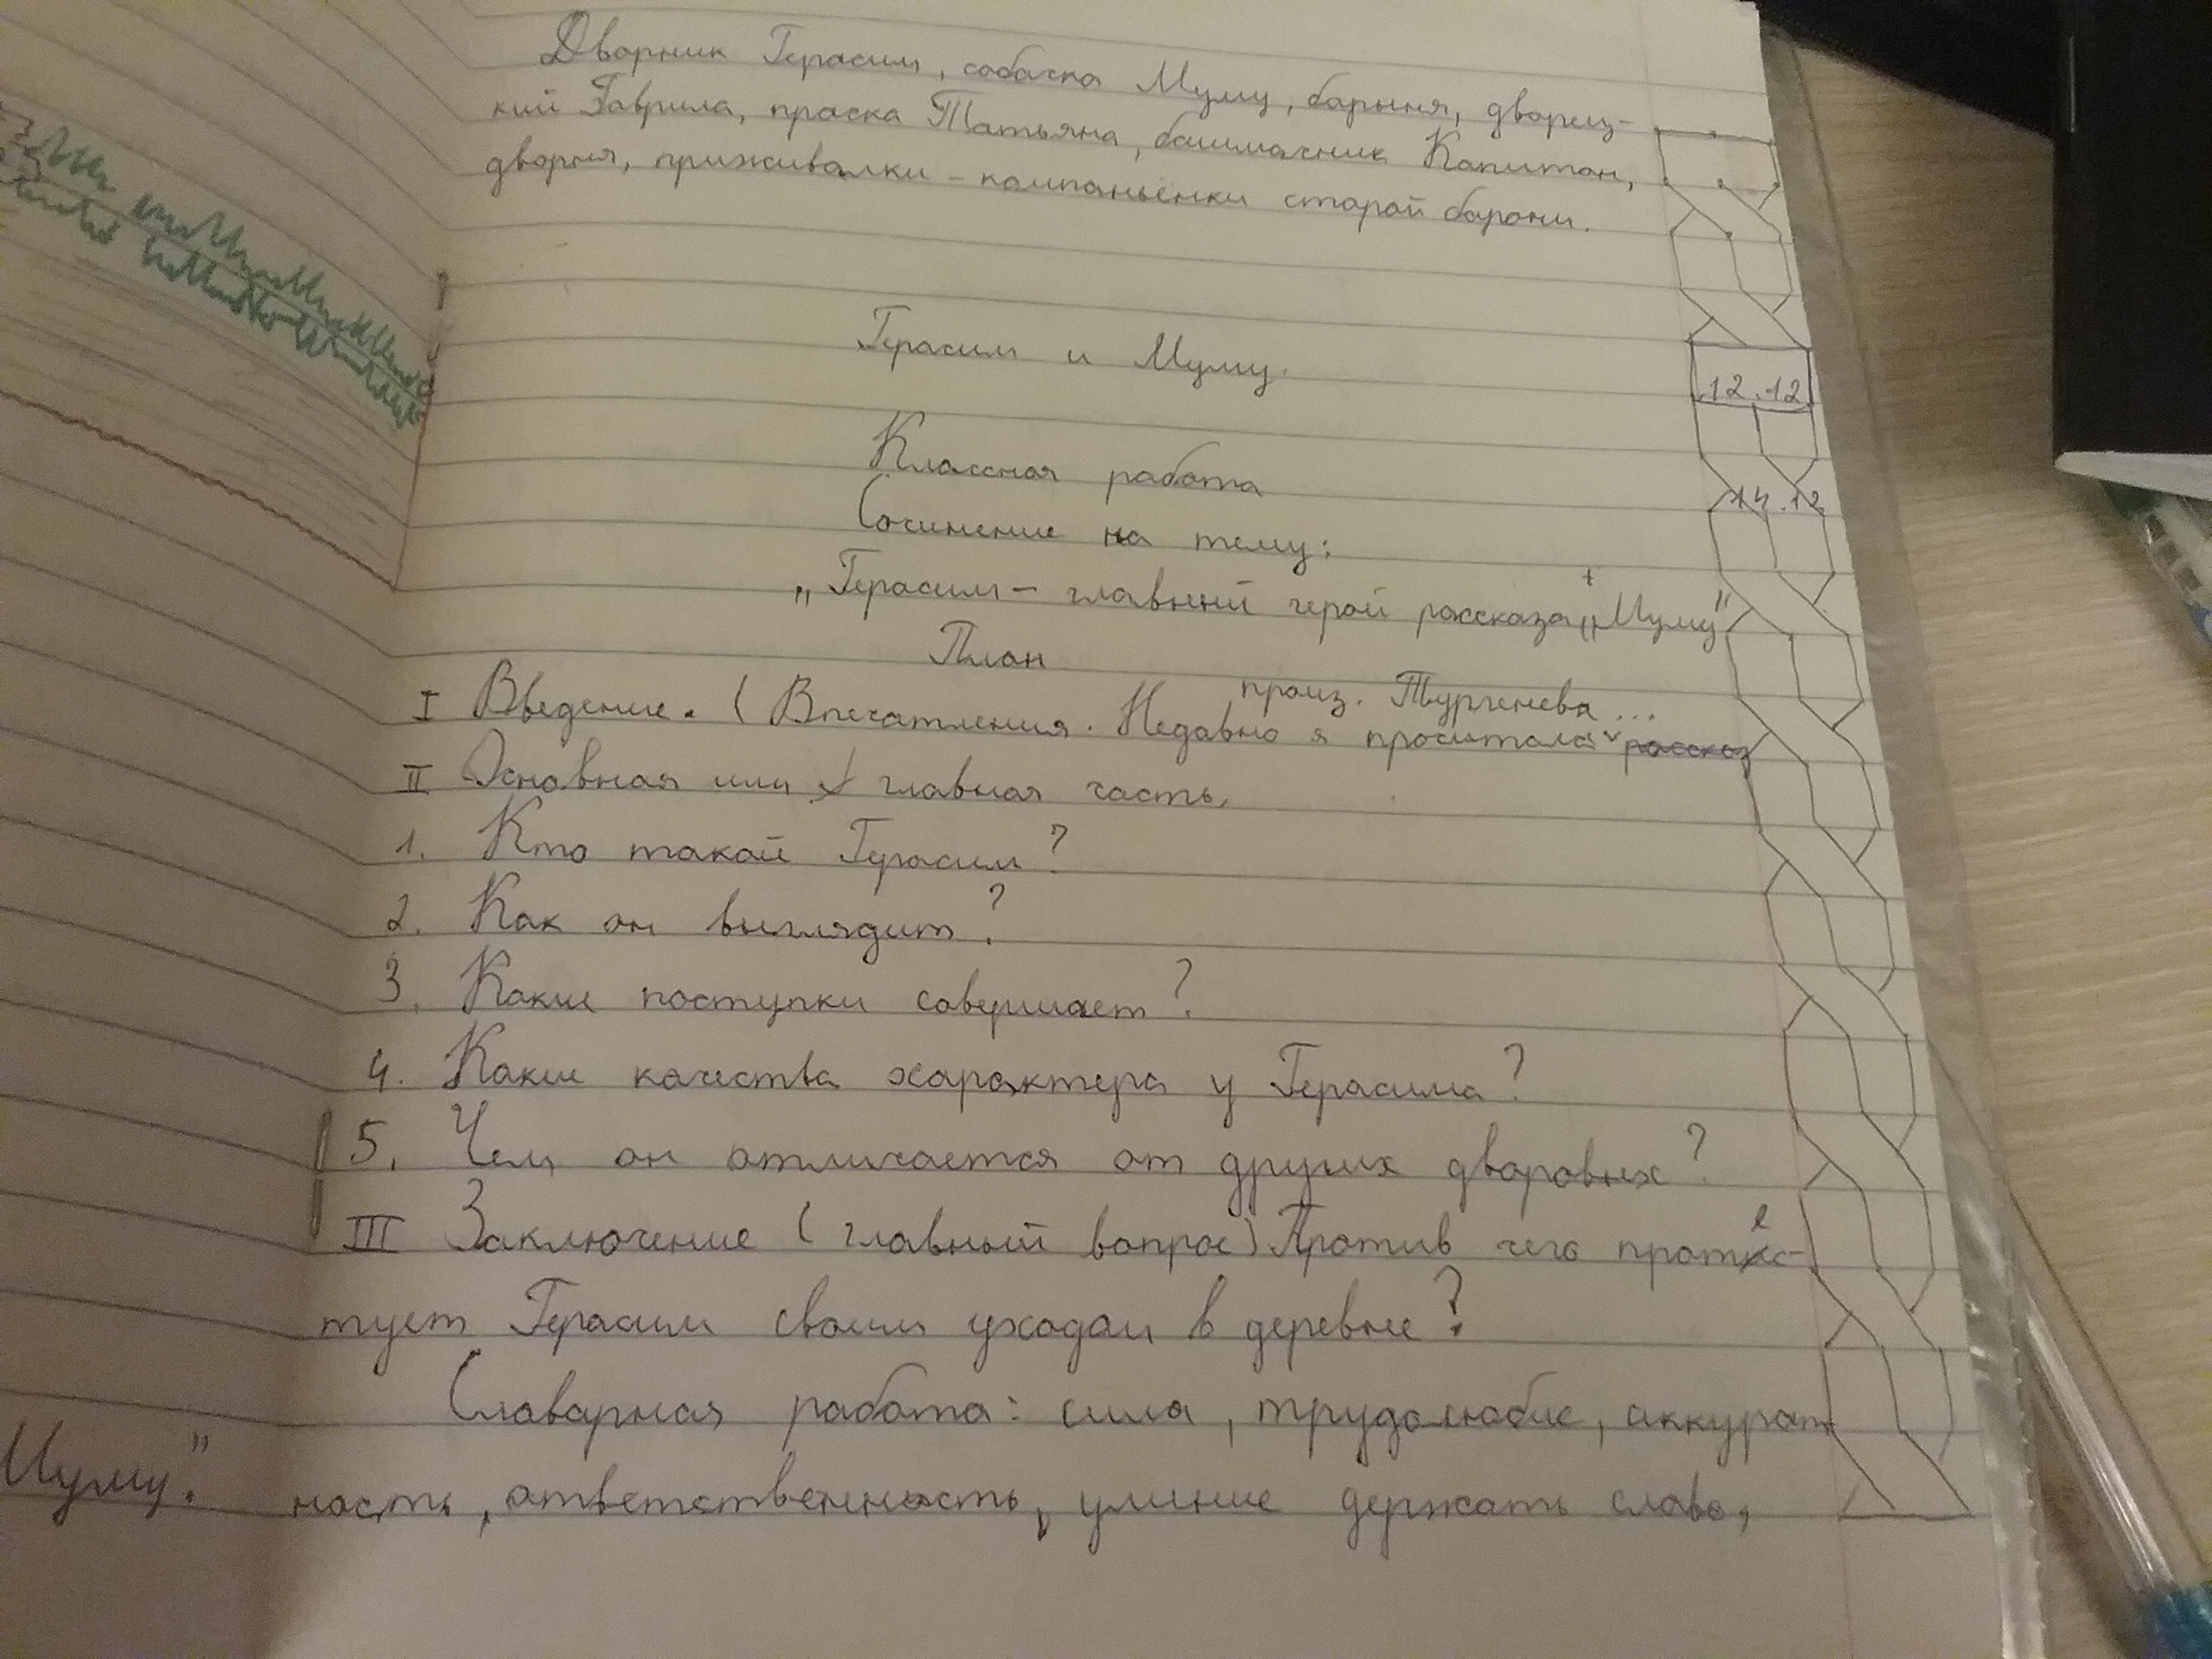 Дворник Герасим, собачка Муму, барыня, дворец-
кий Гаврила, прачка Татьяна, башмачник Капитон,
дворня, приживалки - компаньёнки старой барони.
Герасим и Муму.
12.12
Классная работа
14.12
Сочинение на тему:
„Герасим - главный герой рассказа „Муму"
План
произ. Тургенева ...
I Введение. (Впечатления. Недавно я прочитала рассказ
II Основная или главная часть.
1. Кто такой Герасим?
2. Как он выглядит?
3. Какие поступки совершает?
4. Какие качества характера у Герасима?
5. Чем он отличается от других дворовых?
III Заключение (главный вопрос) Против чего протес-
тует Герасим своим уходом в деревне?
Словарная работа: сила, трудолюбие, аккурат
Муму."
ность, ответственность, умение держать слово,